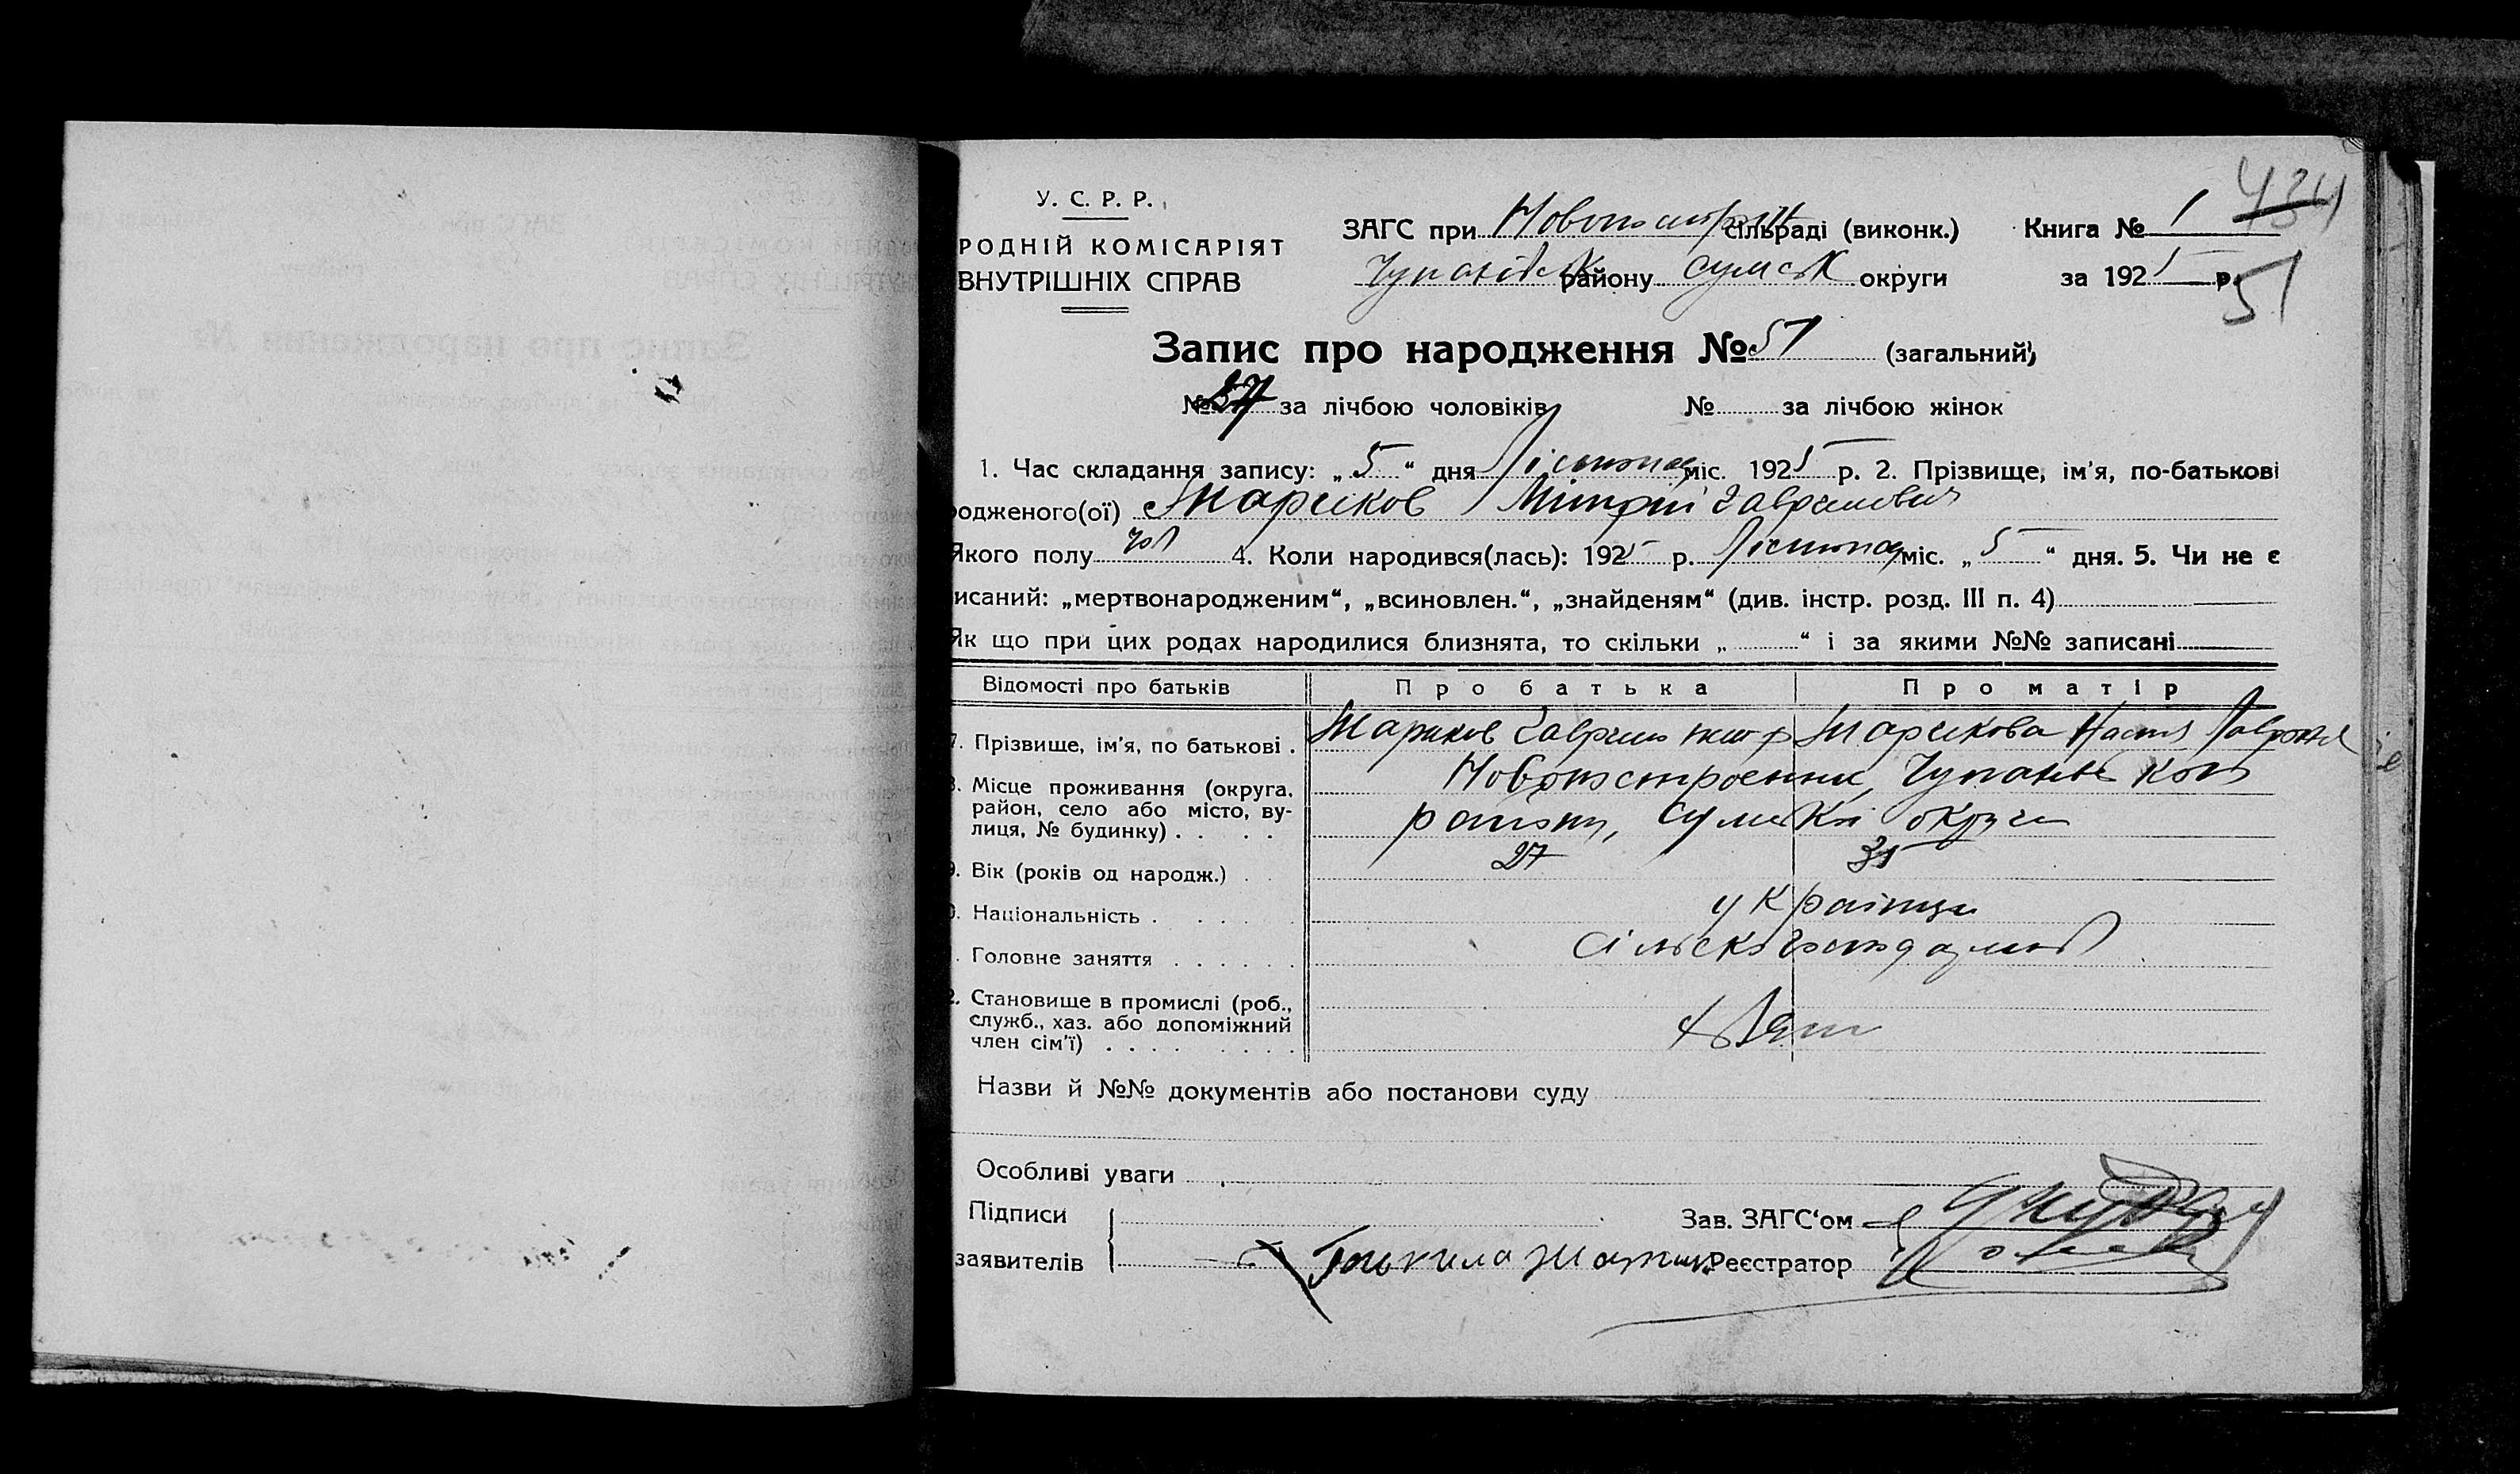 У. С. Р. Р.
РОДНІЙ КОМІСАРІЯТ
ВНУТРІШНІХ СПРАВ
ЗАГС при сільраді (виконк.)
району Сумськ округи
Книга № 1
434
за 1925 р.
51
Запис про народження № 51 (загальний)
№ 27 за лічбою чоловіків № за лічбою жінок
1. Час складання запису: „ 5 “ дня Лістопад міс. 1925 р. 2. Прізвище, ім'я, по-батькові
родженого(ої) Жариков Гаврилович
Якого полу чол 4. Коли народився(лась): 1925 р. Лістопад міс. „ 5 “ дня. 5. Чи не є
исаний: „мертвонародженим“, „всиновлен.“, „знайденям“ (див. інстр. розд. III п. 4)
Як що при цих родах народилися близнята, то скільки „ “ і за якими №№ записані
Відомості про батьків Про батька Про матір
7. Прізвище, ім'я, по батькові . Жариков Гаврило Жарикова Настя
8. Місце проживання (округа, район, село або місто, вулиця, № будинку) . . . .
району, Сумскої округи
9. Вік (років од народж.) . . 27 35
0. Національність . . . . українці
. Головне заняття . . . . . .
2. Становище в промислі (роб., служб., хаз. або допоміжний член сім'ї) . . . . . . . .
Назви й №№ документів або постанови суду
Особливі уваги
Підписи
заявителів
Зав. ЗАГС'ом
Реєстратор